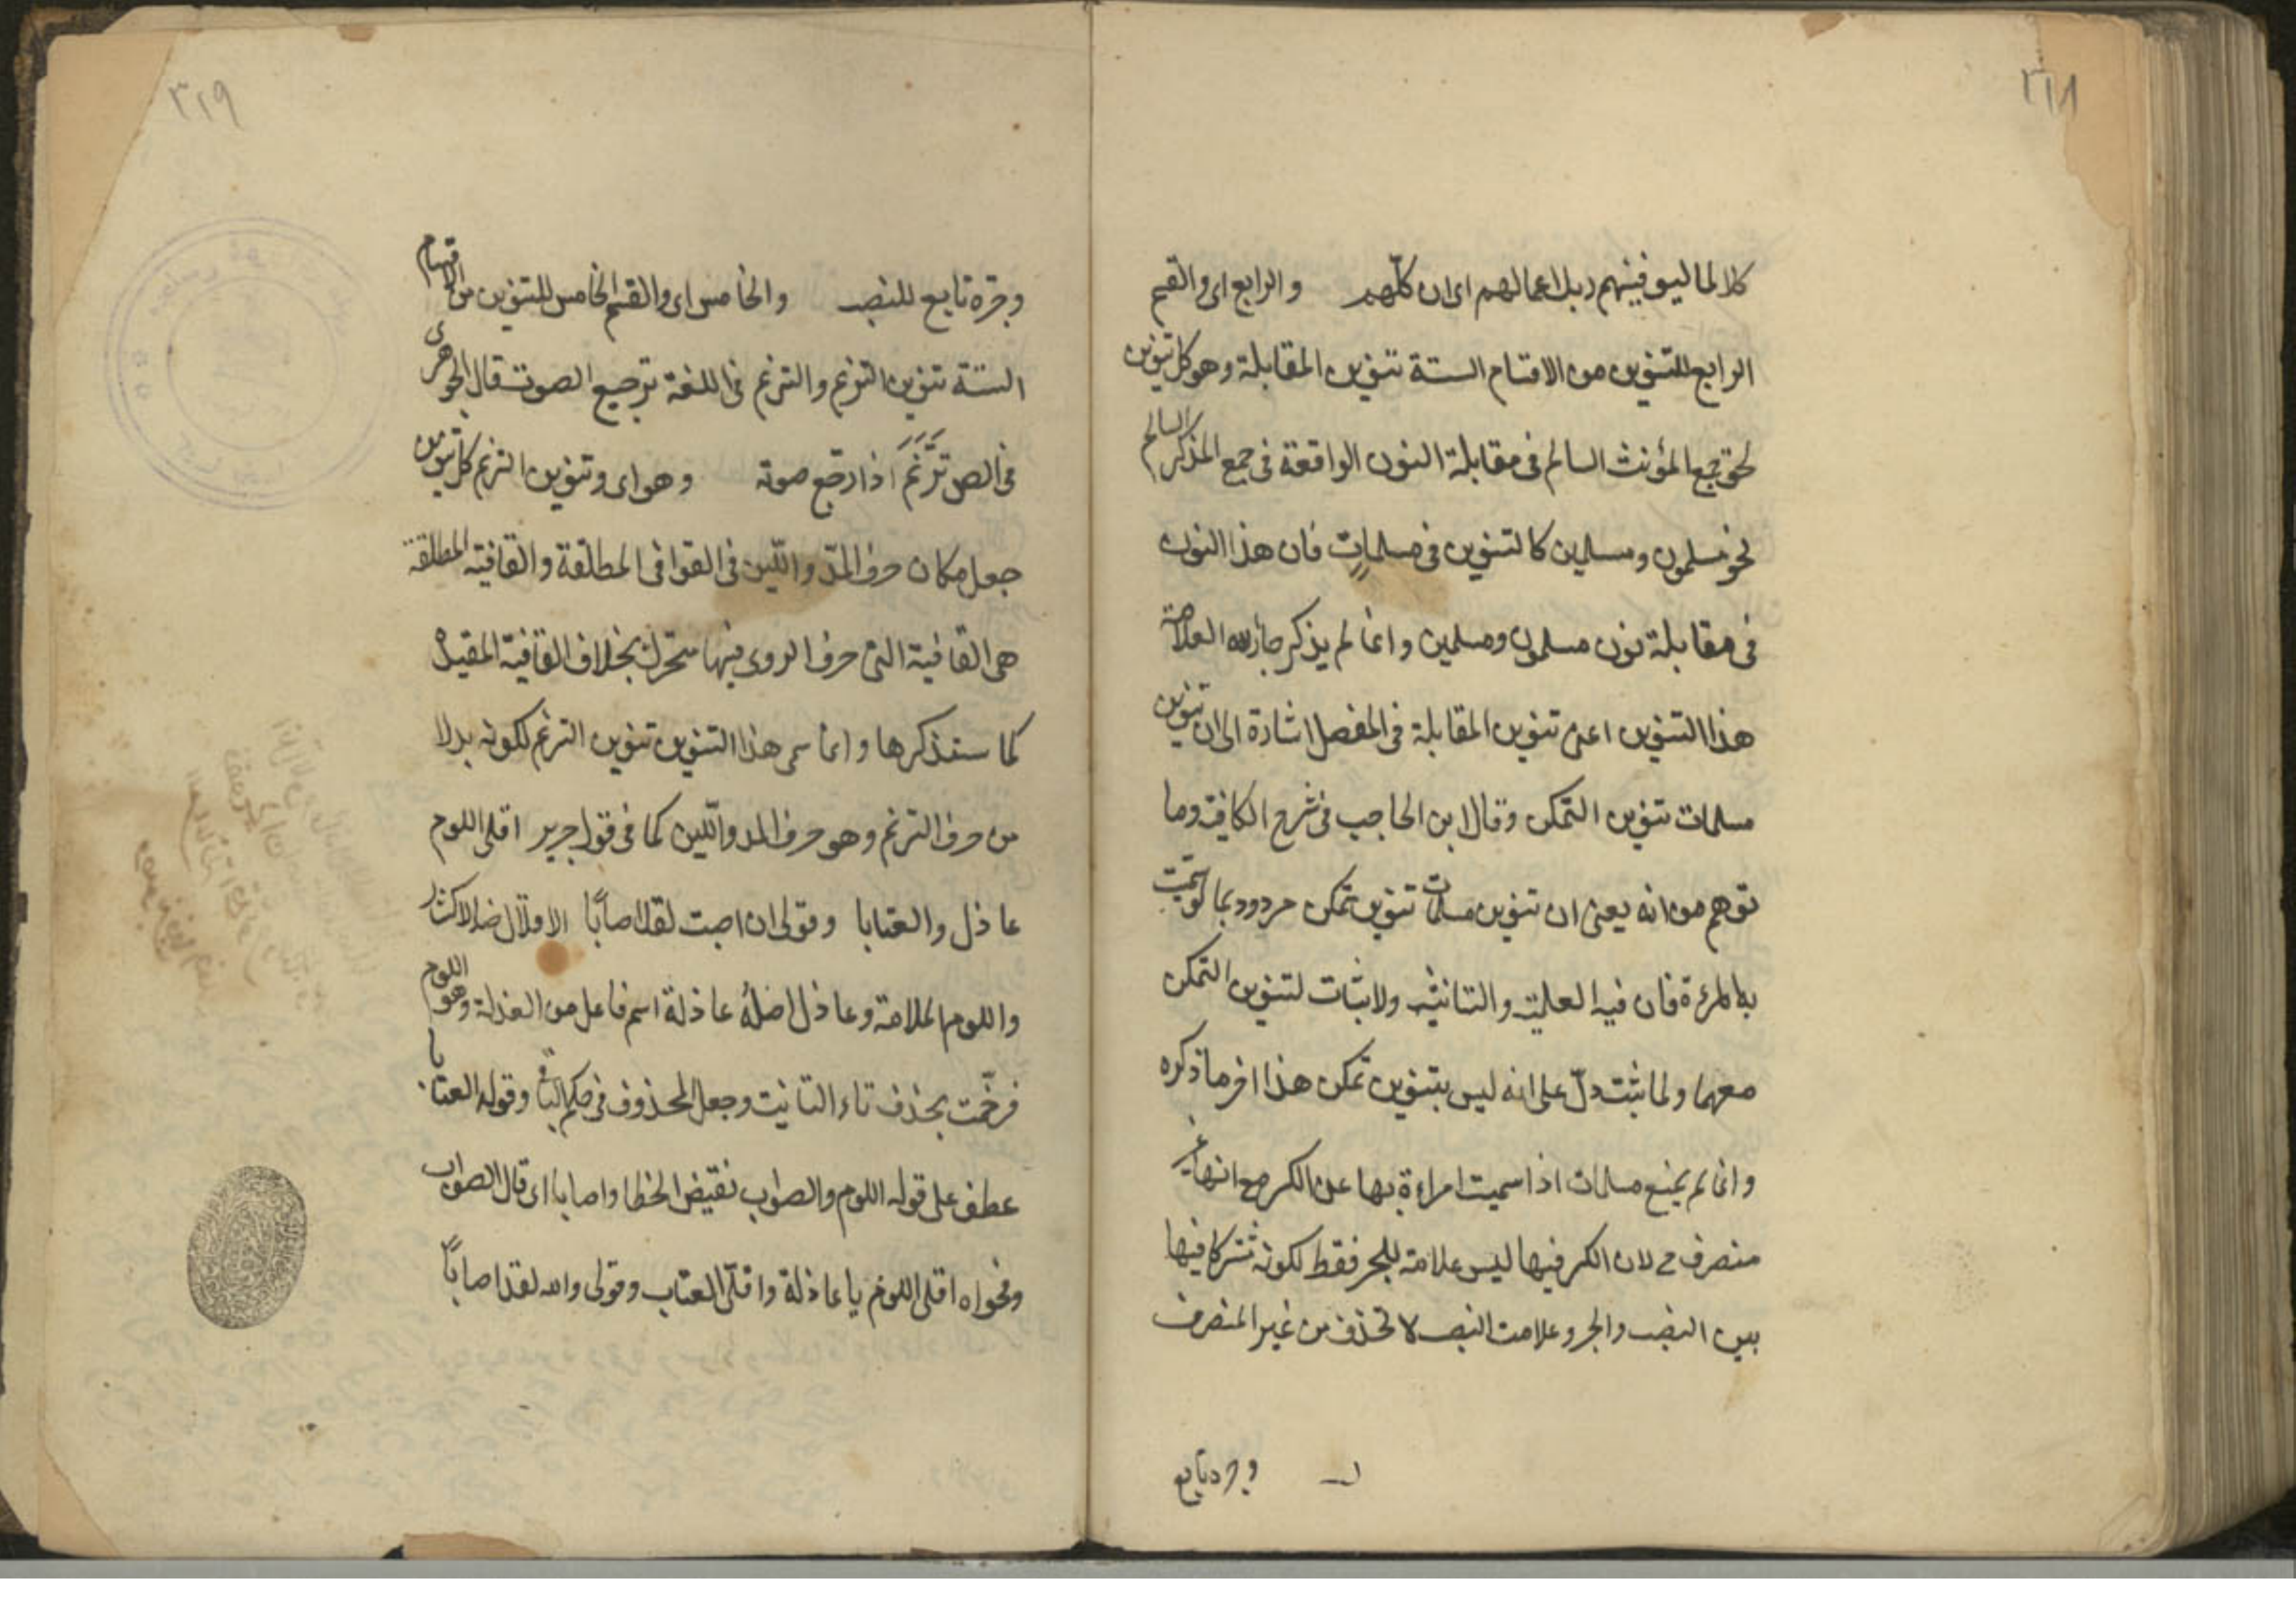 ٣١٨
كلا لما ليوفينهم ربك اعمالهم اى ان كلّهم والرابع اى والقسم
الرابع للتنوين من الاقسام الستة تنوين المقابلة وهو كل تنوين
لحق جمع المؤنث السالم فى مقابلة النون الواقعة فى جمع المذكر السالم
نحو مسلمون ومسلمين كالتنوين فى مسلماتٍ فان هذا النون
فى مقابلة نون مسلمون ومسلمين وانما لم يذكر جار الله العلامة
هذا التنوين اعنى تنوين المقابلة فى المفصل اشارة الى ان تنوين
مسلمات تنوين التمكن وقال ابن الحاجب فى شرح الكافية وما
توهم من انه يعنى ان تنوين مسلمات تنوين تمكن مردود بما لو سمّيت
بها امرءة فان فيه العلمية والتانيث ولا ثبات لتنوين التمكن
معهما ولما ثبت دلّ على انه ليس بتنوين تمكن هذا اخر ما ذكره
وانما لم يمنع مسلمات اذا سميت امراءة بها عن الكسر مع انها غير
منصرف ح لان الكسر فيها ليس علامة للجر فقط لكونه مشتركا فيها
بين النصب والجر وعلامت النصب لا تحذف من غير المنصرف
وجره تابع
٣١٩
وجرّه تابع للنصب والخامس اى والقسم الخامس للتنوين من الاقسام
الستة تنوين الترنم والترنم فى اللغة ترجيع الصوت قال الجوهرى
فى الص تَرَنَّمَ اذا رجّع صوته وهو اى وتنوين الترنم كل تنوين
جعل مكان حرف المدّ واللّين فى القوافى المطلقة والقافية المطلقة
هى القافية التى حرف الروى فيها متحرك بخلاف القافية المقيدة
كما سنذكرها وانما سمى هذا التنوين تنوين الترنم لكونه بدلا
من حرف الترنم وهو حرف المد واللّين كما فى قول جرير اقلى اللوم
عاذل والعتابا وقولى ان اصبت لقد اصابًا الاقلال ضد الاكثار
واللوم الملامة وعاذل اصله عاذلة اسم فاعل من العذلة وهو اللوم
فرخّمت بحذف تاء التانيت وجعل المحذوف فى حكم الباقى وقوله العتابا
عطف على قوله اللوم والصواب نقيض الخطا واصابا اى قال الصواب
وفحواه اقلى اللوم يا عاذلة واقلّى العتاب وقولى والله لقد اصابًا